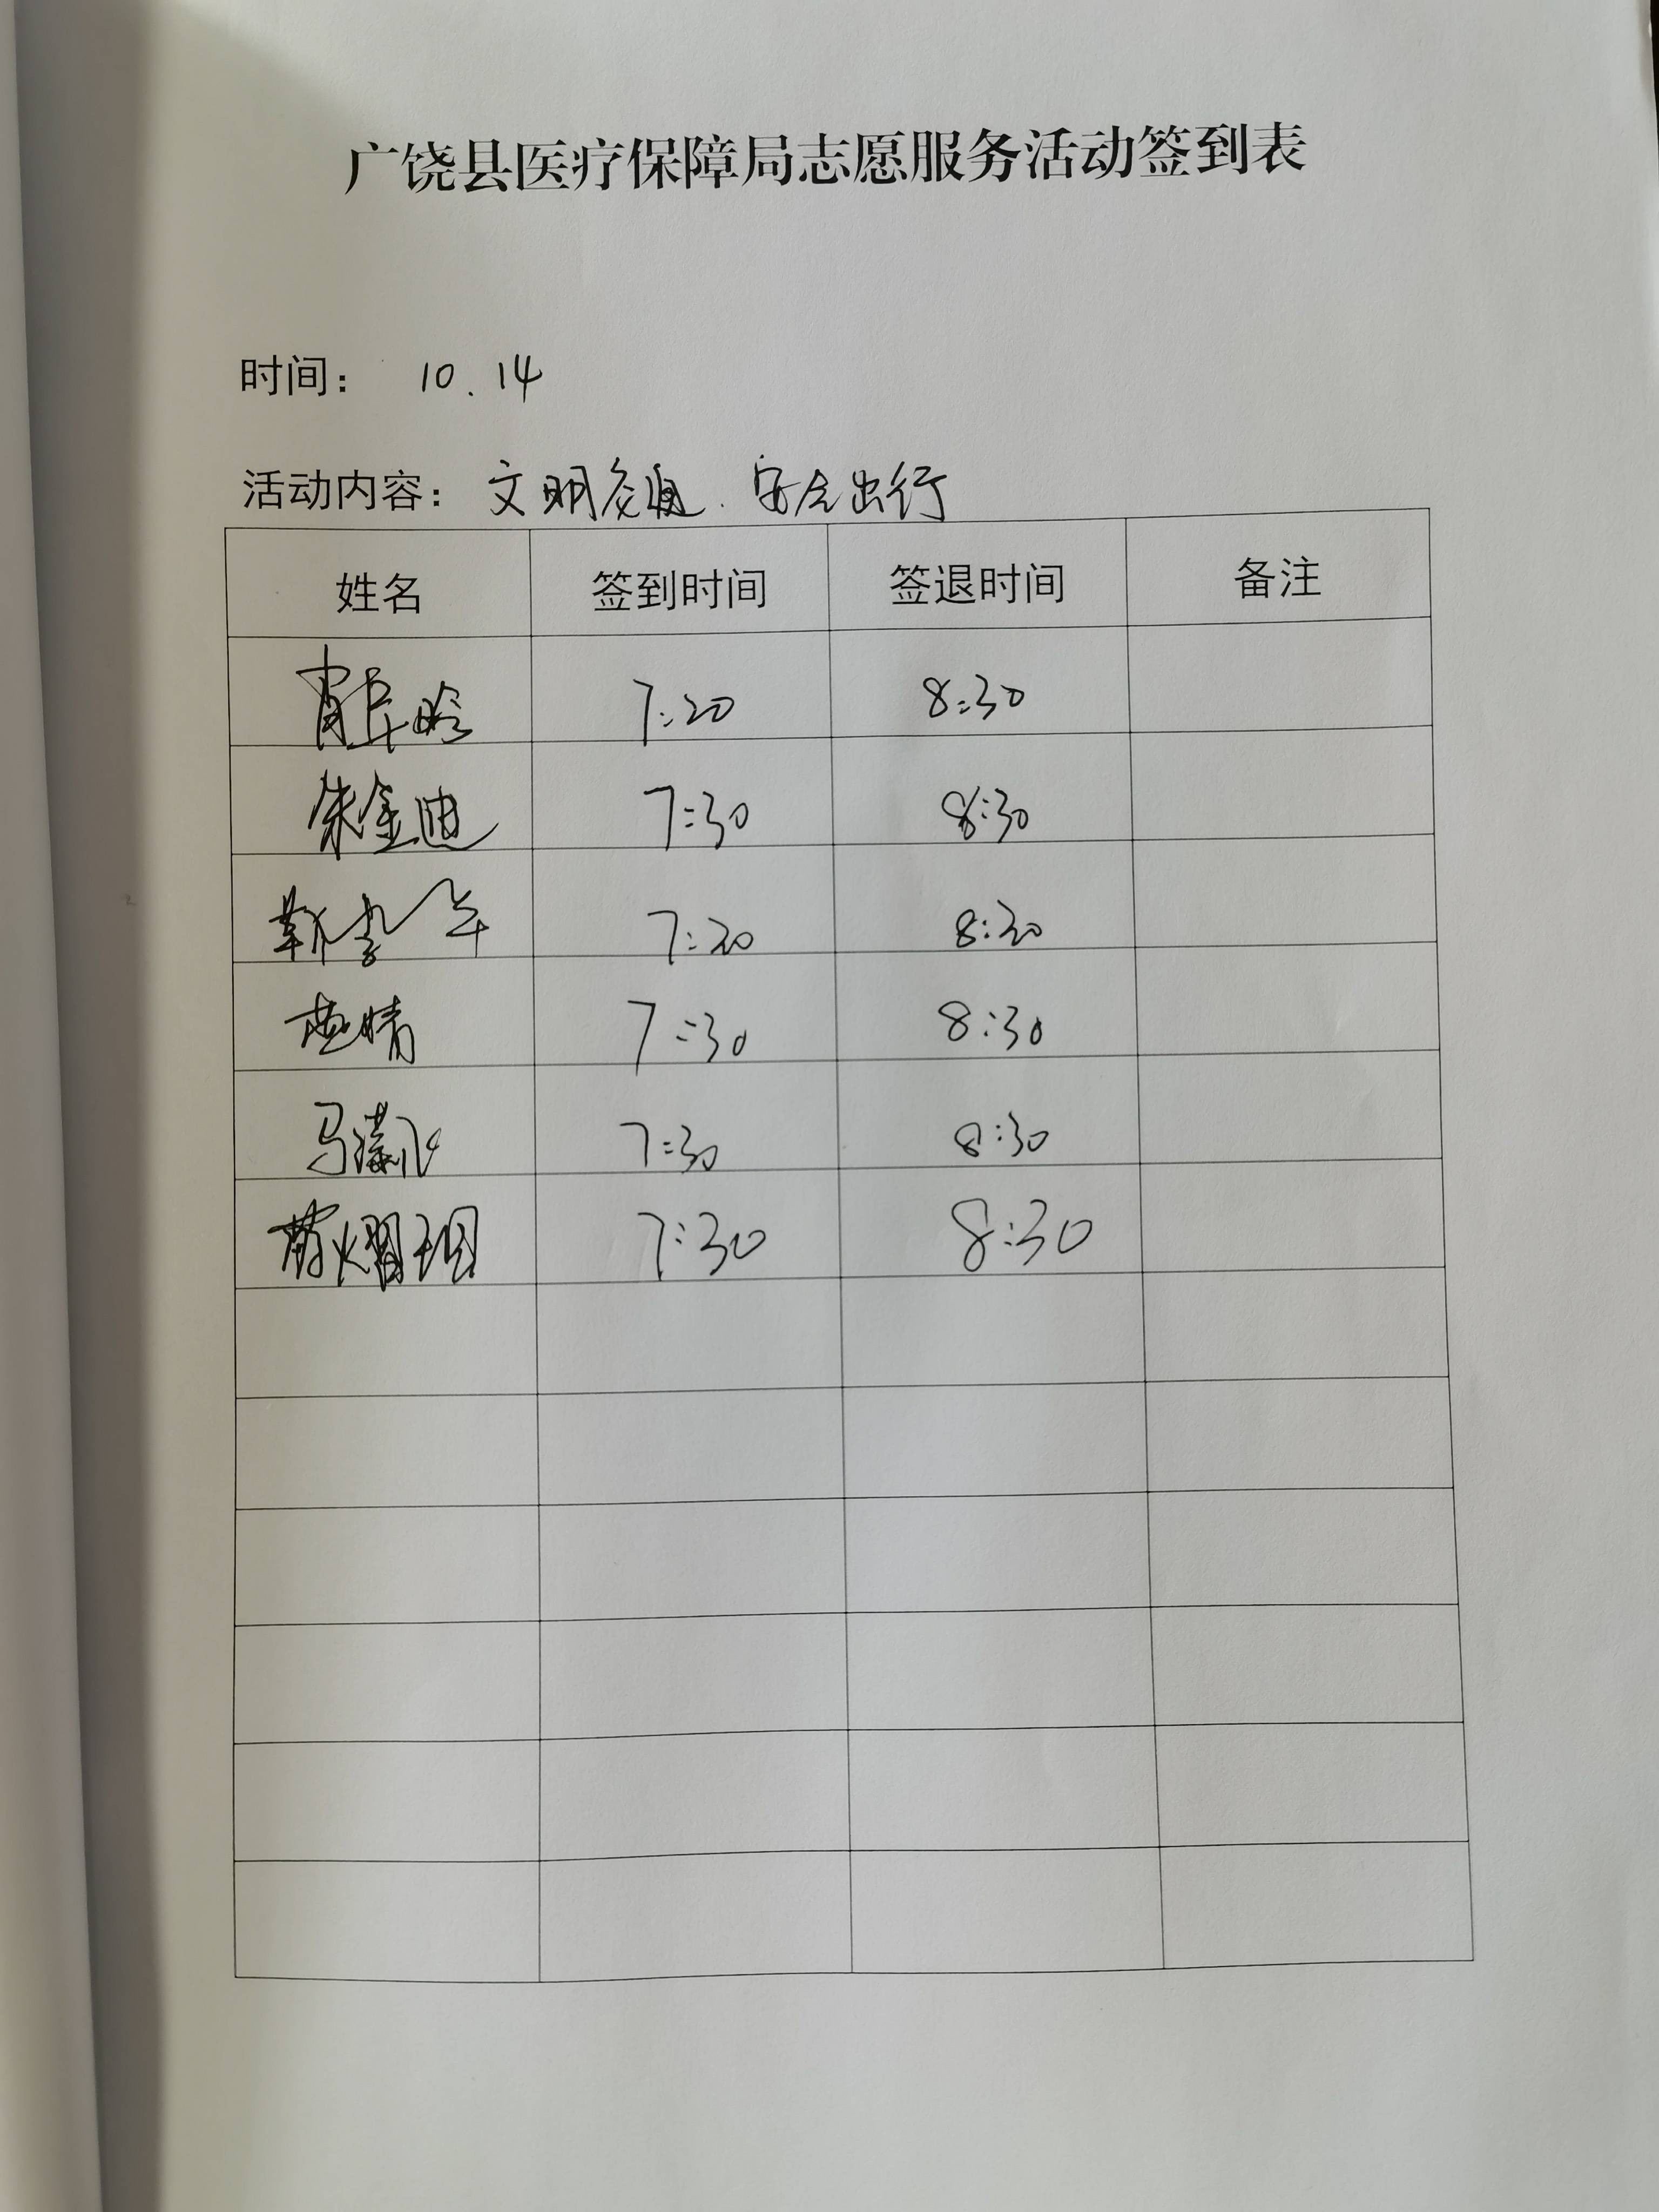 广饶县医疗保障局志愿服务活动签到表
时间： 10.14
活动内容： 文明交通.安全出行
姓名 签到时间 签退时间 备注
7:20 8:30
朱金迪 7:30 8:30
7:20 8:20
燕婧 7:30 8:30
马 7:30 8:30
7:30 8:30